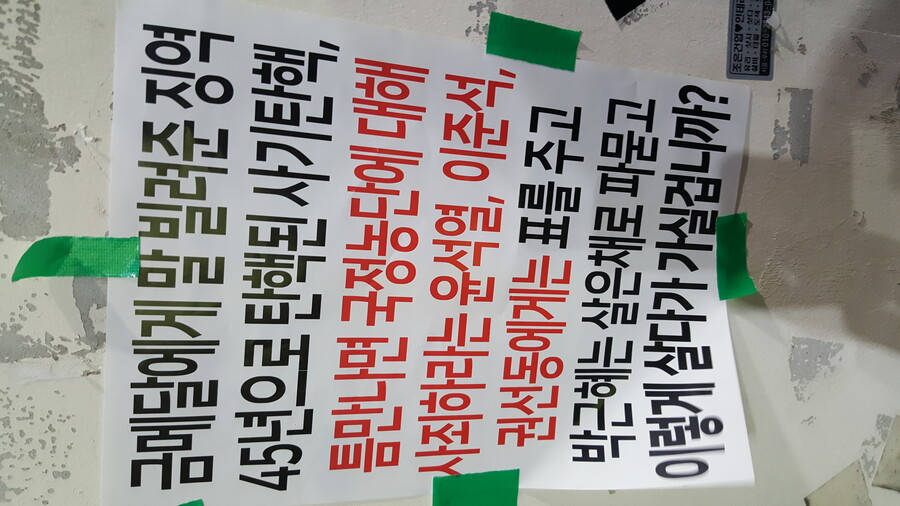 금메달에게 말 빌려준 징역
45년으로 탄핵된 사기탄핵,
틈만나면 국정농단에 대해
사죄하라는 윤석열, 이준석,
권선동에게는 표를 주고
박근혜는 살은채로 파묻고
이렇게 살다가 가실겁니까?
조은건업♥인테리